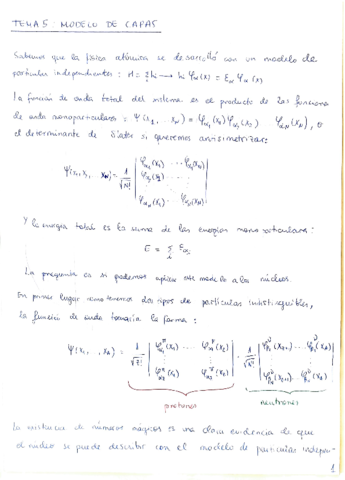 TEMA 5 MODELO DE CAPAS
Sabemos que la física atómica se desarrolló con un modelo de
partículas independientes: H = Σ hᵢ → hᵢ φα(x) = Eα φα(x)
La función de onda total del sistema es el producto de las funciones
de onda monoparticulares: Ψ(x₁, ..., x_N) = φα₁(x₁) φα₂(x₂) φα_N(x_N), o
el determinante de Slater si queremos antisimetrizar:
Ψ(x₁, x₂, , x_N) = 1/√N! | φα₁(x₁) ... φα₁(x_N)
φα₂(x₂)
φα_N(x₁) ... φα_N(x_N) |
Y la energía total es la suma de las energías monoparticulares:
E = Σ Eαᵢ
La pregunta es si podemos aplicar este modelo a los núcleos.
En primer lugar como tenemos dos tipos de partículas indistinguibles,
la función de onda tomaría la forma:
Ψ(x₁, , x_N) = 1/√Z! | · 1/√N! |
protones neutrones
La existencia de números mágicos es una clara evidencia de que
el núcleo se puede describir con el modelo de partículas indepen-
1